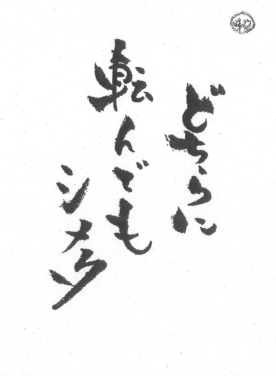 どちらに
転んでも
シメタ